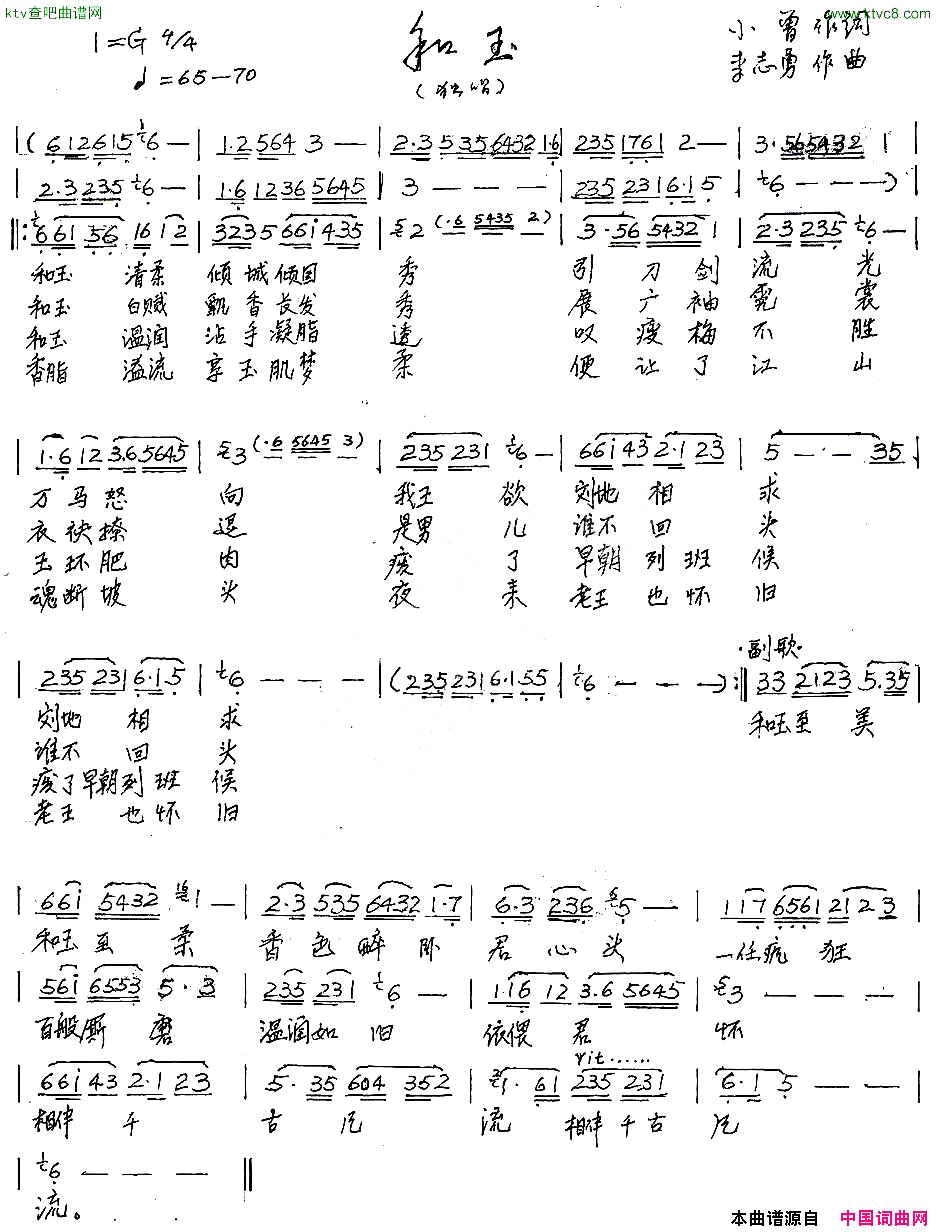 ktv查吧曲谱网
www.ktvc8.com
1=G 4/4
和玉
小曾作词
♩=65—70
(独唱)
李志勇作曲
(612615 6— | 1·2564 3— | 2·3 535 6432 1·6 | 235 1761 2— | 3·565432 1 |
2·3 235 6— | 1·6 1236 5645 | 3 — — — | 235 231 6·15 | 6 — — —) |
‖: 661 56 16 12 | 3235 661435 | 2 (·6 5435 2) | 3·56 5432 1 | 2·3 235 6— |
和玉 清柔 倾城倾国 秀 引刀剑流光
和玉 白贼 飘香长发 秀 展广袖霓裳
和玉 温润 沾手凝脂 透 叹瘦梅不胜
香脂 溢流 享玉肌梦 柔 便让了江山
1·6 12 3·65645 | 3 (·6 5645 3) | 235 231 6— | 661 43 2·1 23 | 5 — — 35 |
万马怒 向 我王欲 刻地相 求
衣袂撩 退 是男儿 谁不回 头
玉环肥 肉 疲了 早朝列班 候
魂断坡 头 夜来 老王也怀 旧
235 231 6·15 | 6 — — — | (235 231 6·155 | 6 — — —) :‖
·副歌·
33 2123 5·35 |
刻地相 求
和玉至美
谁不回 头
疲了早朝列班 候
老王也怀 旧
| 661 5432 1— | 2·3 535 6432 1·7 | 6·3 236 5— | 117 6561 212 3 |
和玉至柔 香色醉卧 君心头 一任疯狂
| 561 6553 5·3 | 235 231 6— | 1·16 12 3·6 5645 | 3 — — — |
百般厮磨 温润如旧 依偎君 怀
rit……
| 661 43 2·1 23 | 5·35 604 352 | 1·61 235 231 | 6·1 5 — — |
相伴千 古 流 相伴千古
| 6 — — — ‖
流。
本曲谱源自 中国词曲网